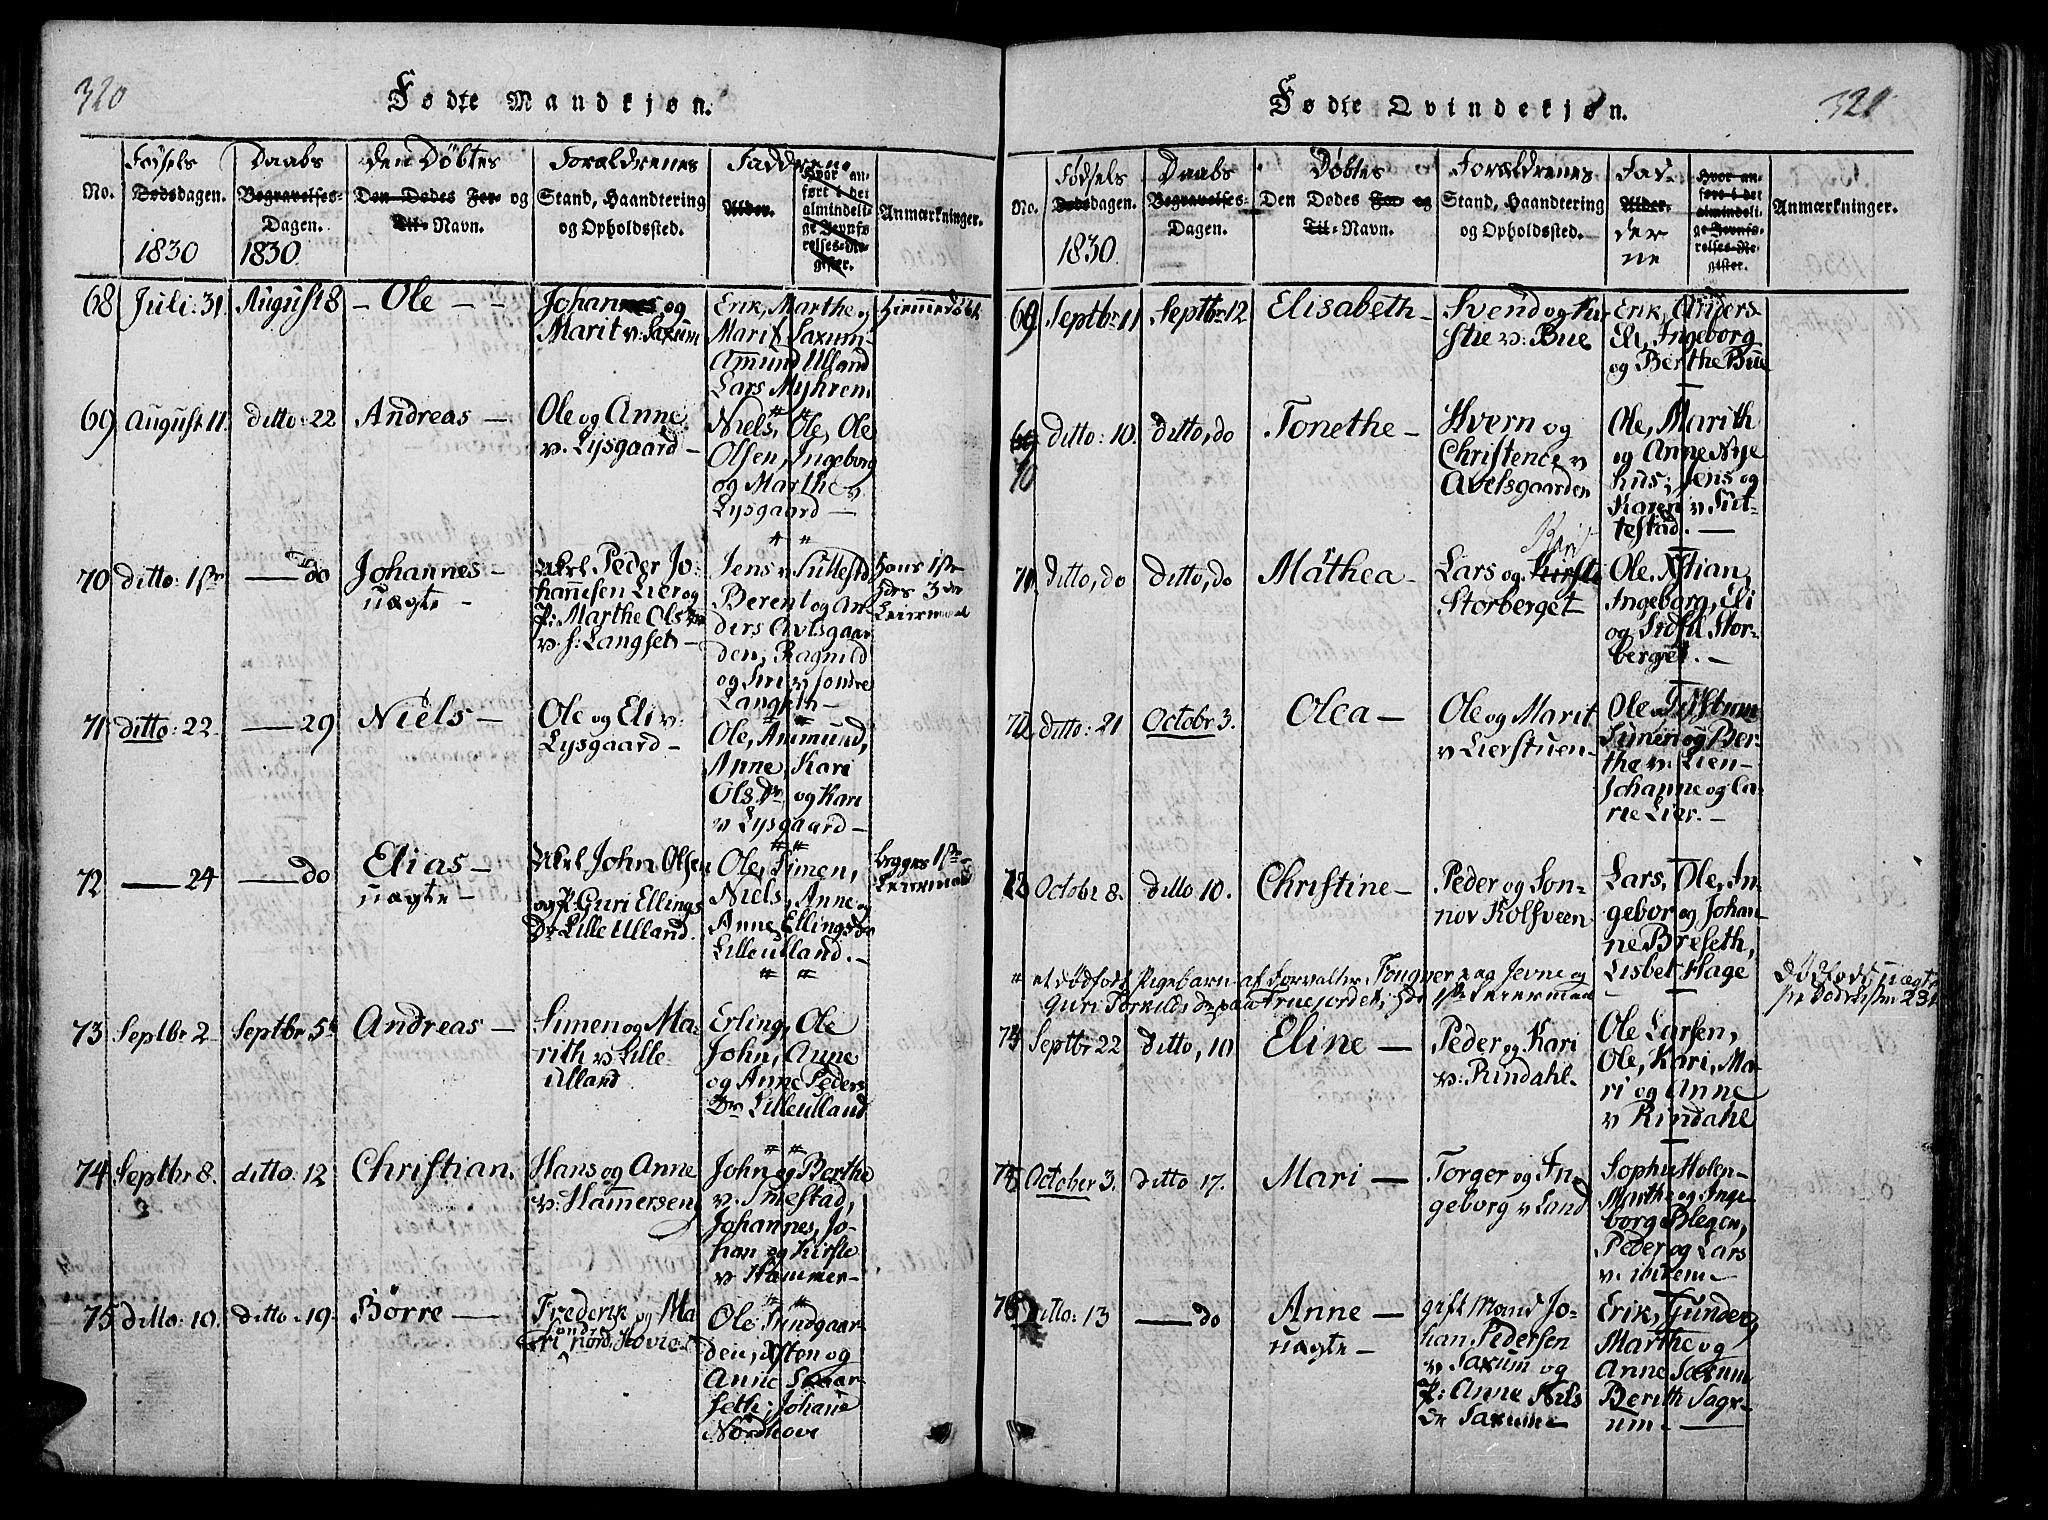 320
Fødte Mandkjøn.
No.
Føsels
Dødsdagen.
1830
Daabs
Begravelses-
Dagen.
1830
den Døbtes
Den Dødes For- og
Til-Navn.
Foraldrenes
Stand, Haandtering
og Opholdssted.
Faddrene
Alder.
Hvor an-
ført i det
almindeli-
ge Jevnfø-
relses-Re-
gister.
Anmærkninger.
68 Juli: 31. August 8 - Ole -
Johannes og
Marit v: Saxum
Erik, Marthe og
Marit Saxum
Amund Ulland
Lars Myhren.
Hjemmedøbt
69 August 11. ditto: 22 Andreas -
Ole og Anne
v. Lysgaard -
Niels, Ole, Ole
Olsen, Ingeborg
og Marthe v.
Lysgaard -
70 ditto: 1ste - do Johannes -
uægte -
Peder Jo-
hannesen Lier og
P: Marthe Ols Dr
v. s: Langset -
Jens v Suttestd
Berent og An-
ders Avlsgaar-
den, Ragnild
og Siri v Søndre
Langseth -
Hans 1ste
hdes 3de
Leiermaal
71 ditto: 22 - 29 Niels -
Ole og Eli v:
Lysgaard -
Ole, Ammund,
Anne, Kari
Ols. Dr og Kari
v Lysgaard -
72 - 24 - do Elias -
uægte -
John Olsen
og P: Guri Ellings
Dr Lille Ulland.
Ole, Simen,
Niels, Anne og
Anne Ellingsdr
Lilleulland. -
Begges 1ste
Leiermaal
73 Septbr 2 Septbr 5te Andreas -
Simen og Ma-
rith v Lille
Ulland
Erling, Ole
John, Anne
og Anne Peders
Dr Lilleulland
74 Septbr 8. ditto: 12 Christian.
3
Hans og Anne
v: Hamerseng
John og Berthe
v. Smestad,
Johannes, Jo-
han og Kirstie
v Hammer -
75 ditto: 10. ditto: 19. Børre -
Frederik og Ma-
ri Nord Hovie
søndr
Ole Sundgaar-
den, Østen og
Anne Skaar-
seth; Johane
Nordhove
321
Fødte Qvindekjøn.
No.
Fødsels
Dødsdagen.
1830
Daabs
Begravelses-
Dagen.
1830.
Døbtes
Den Dødes For- og
Til-Navn.
Foraldrenes
Stand, Haandtering
og Opholdssted.
Fad-
Alder.
der
ne
Hvor an-
ført i det
almindeli-
ge Jevnfø-
relses-Re-
gister.
Anmærkninger.
69 Septbr 11 Septbr 12 Elisabeth -
Svend og Kir-
stie v: Bue
Erik, Anders-
Eli, Ingeborg
og Berthe Bue
70 ditto: 10. ditto, do Tonethe -
Hvern og
Christence v
Avelsgaarden
Ole, Marith
og Anne Nye
hus; Jens og
Karen v Sut-
testad. -
71. ditto, do ditto, do Mathea -
Lars og Kirsti
Kari
Storberget
Ole, Xstian,
Ingeborg, Eli
og Sidsel Stor-
berget. -
72 ditto: 21 October 3. Olea -
Ole og Marit
v Lierstuen -
Ole
Simen og Ber-
the v. Lien -
Johanne og Ca-
rie Lier. -
73 October 8. ditto 10. Christine -
Peder og Son-
nov Kolfveen
Lars, Ole, In-
gebor og Johan-
ne Breseth,
Lisbet Hage
" et dødfødt Pigebarn af Forvalter Tougner paa Jevne og
Guri Torkilds Dr paa Fruejordet; hds 1ste Leiermaal
Dødfødt uægte
74 Septbr 22 ditto, 10 Eline -
Peder og Kari
v: Rindahl.
Ole Larsen,
Ole, Kari, Ma-
ri og Anne
v Rindahl
75 October 3. ditto 17. Mari -
Torger og In-
geborg v Land
Sophie Holen -
Marthe og Inge-
borg Blegen,
Peder og Lars
v. ibidem -
76 Ditto: 13 - do Anne -
uægte -
gift Mand Jo-
han Pedersen
v Saxum og
P: Anne Nils
Dr Saxum -
Erik, Gunder,
Marthe og
Anne Saxum
Berith Sagr-
um. -